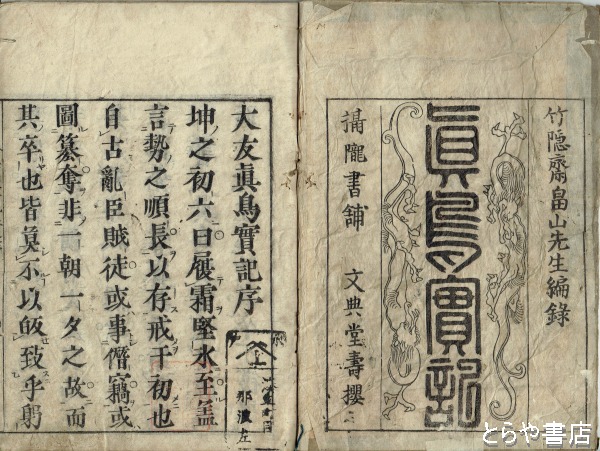 竹隠齋畠山先生編錄
眞鳥實記
書舗 文典堂壽櫻
大友眞鳥實記序
坤之初六曰履霜堅氷至盖
言勢之順長以存戒于初也
自古亂臣賊徒或事僭竊或
圖簒奪非一朝一夕之故而
其卒也皆莫不以敀致乎躬
那波左
とらや書店